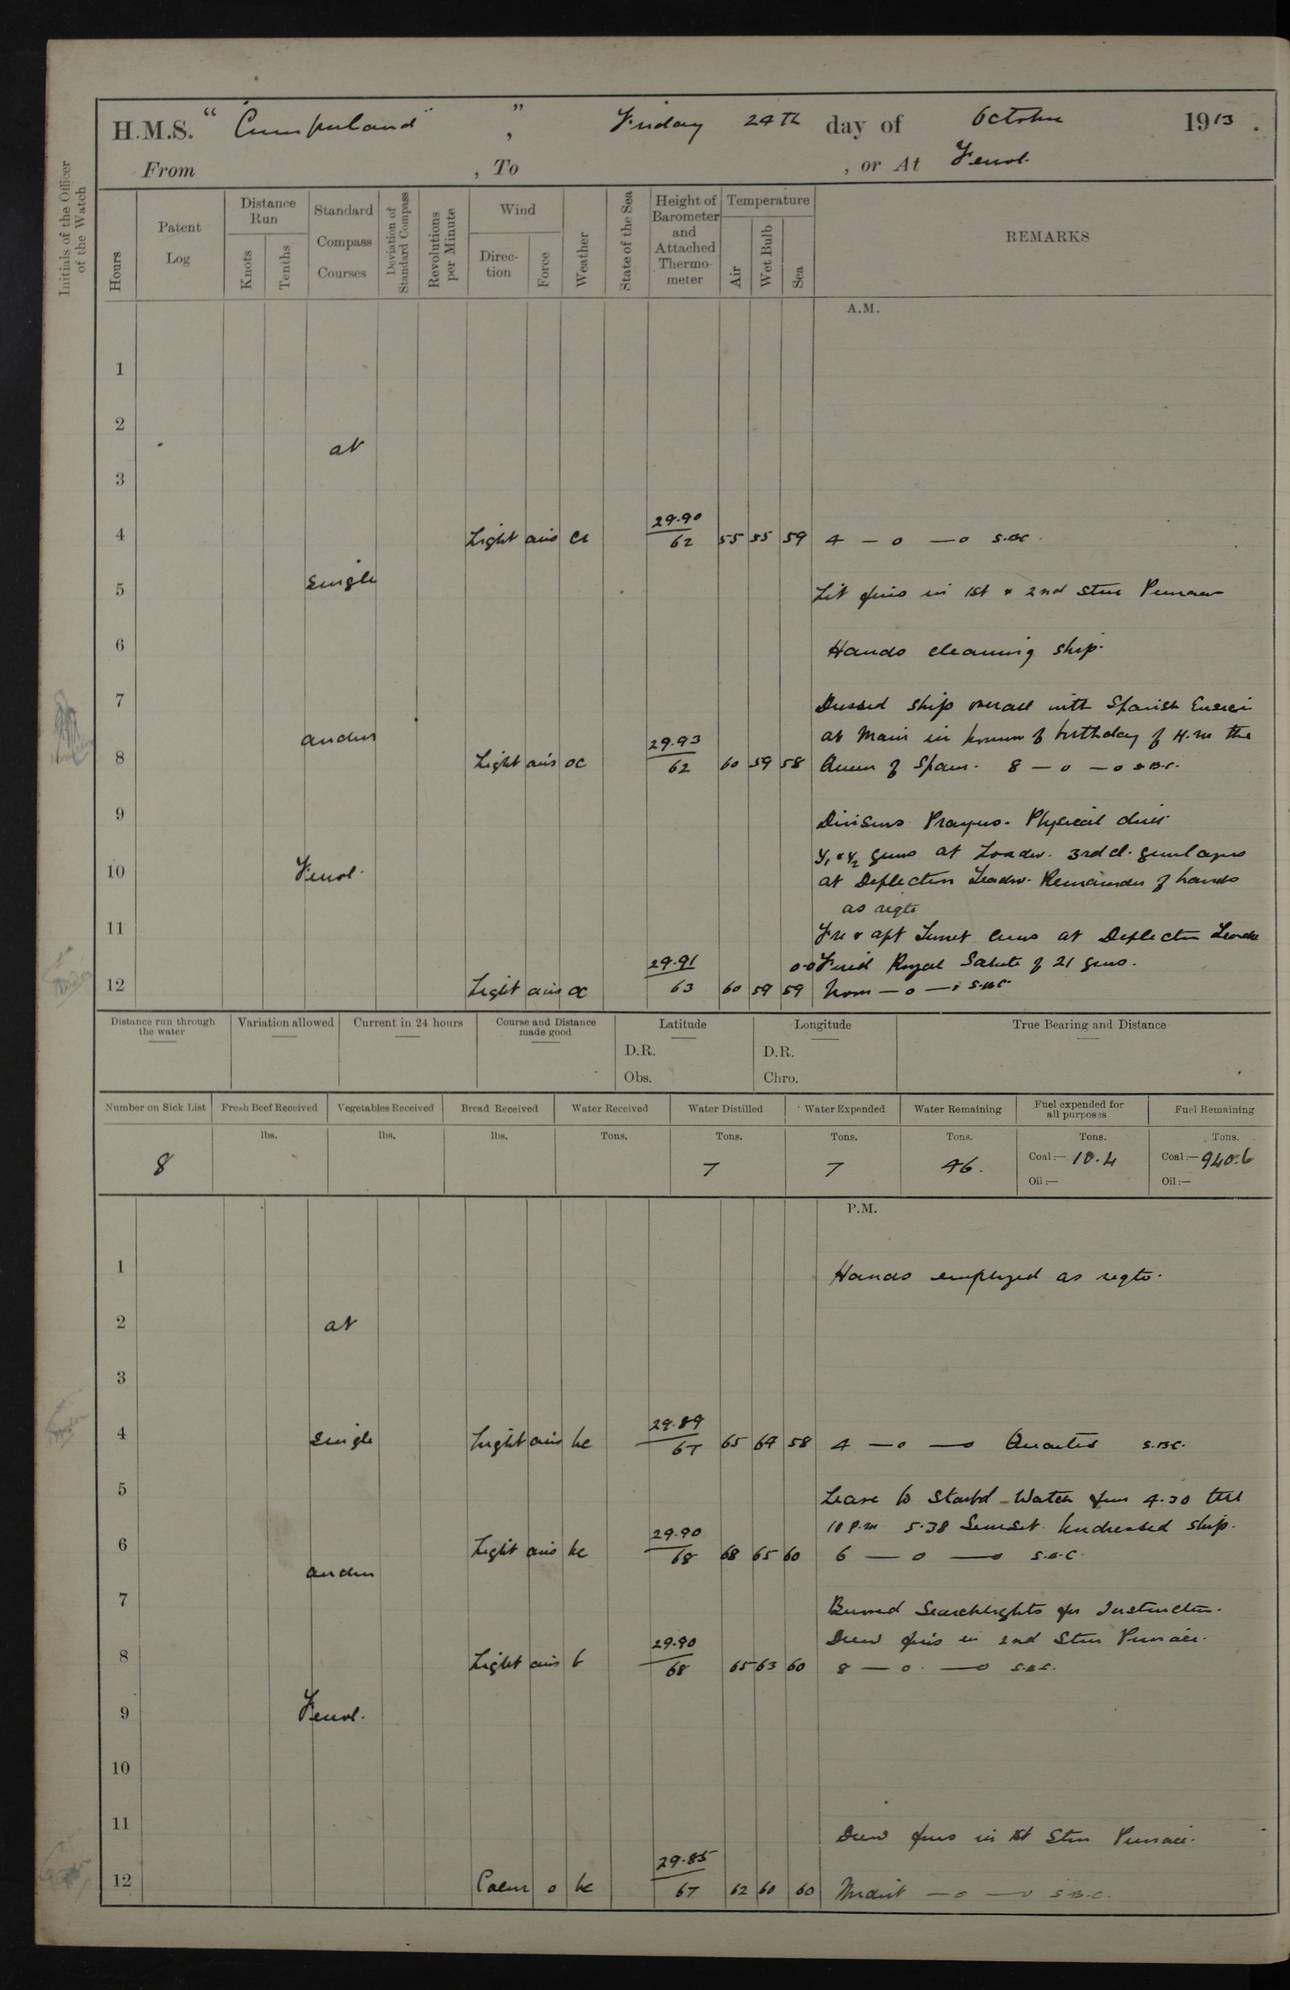 H.M.S. "Cumberland", Friday 24th day of October 1913.
From , To , or At Ferrol.
Initials of the Officer of the Watch
Hours
Patent Log
Distance Run
Knots
Tenths
Standard Compass Courses
Deviation of Standard Compass
Revolutions per Minute
Wind
Direction
Force
Weather
State of the Sea
Height of Barometer and Attached Thermometer
Temperature
Air
Wet Bulb
Sea
REMARKS
A.M.
1
2
at
3
4 Light airs 29.90 62 55 55 59 4 — o — o S.B.C.
5 Single Lit fires in 1st & 2nd Stm Pinnaces
6 Hands cleaning ship.
7 Dressed ship overall with Spanish Ensign
anchor at Main in honour of birthday of H.M the
8 Light airs oc 29.93 62 60 59 58 Queen of Spain. 8 — o — o S.B.C.
9 Divisions Prayers. Physical drill
guns at Loader. 3rd cl. gunlayers
10 Ferrol. at Deflection Leader. Remainder of hands
as reqte
11 Fre & aft Turret Crews at Deflectn
0.0 Fired Royal Salute of 21 guns.
12 Light airs oc 29.91 63 60 59 59 Noon — o — o S.B.C.
Distance run through the water
Variation allowed
Current in 24 hours
Course and Distance made good
Latitude
D.R.
Obs.
Longitude
D.R.
Chro.
True Bearing and Distance
Number on Sick List
Fresh Beef Received
Vegetables Received
Bread Received
Water Received
Water Distilled
Water Expended
Water Remaining
Fuel expended for all purposes
Fuel Remaining
lbs. lbs. lbs. Tons. Tons. Tons. Tons. Tons. Tons.
8 7 7 46. Coal:— 10.4 Coal:— 940.6
Oil:— Oil:—
P.M.
1 Hands employed as reqte.
2 at
3
4 Single Light airs bc 29.89 67 65 64 58 4 — o — o Quarters S.B.C.
5 Leave to Starbd Watch from 4.30 till
10 P.m 5.38 Sunset. Undressed ship.
6 Light airs bc 29.90 68 68 65 60 6 — o — o S.B.C.
anchor
7 Burned Searchlights for Instruction.
Drew fires in 2nd Stm Pinnace.
8 Light airs b 29.90 68 65 63 60 8 — o — o S.B.C.
9 Ferrol.
10
11 Drew fires in 1st Stm Pinnace.
12 Calm o bc 29.85 67 62 60 60 Midnt — o — o S.B.C.